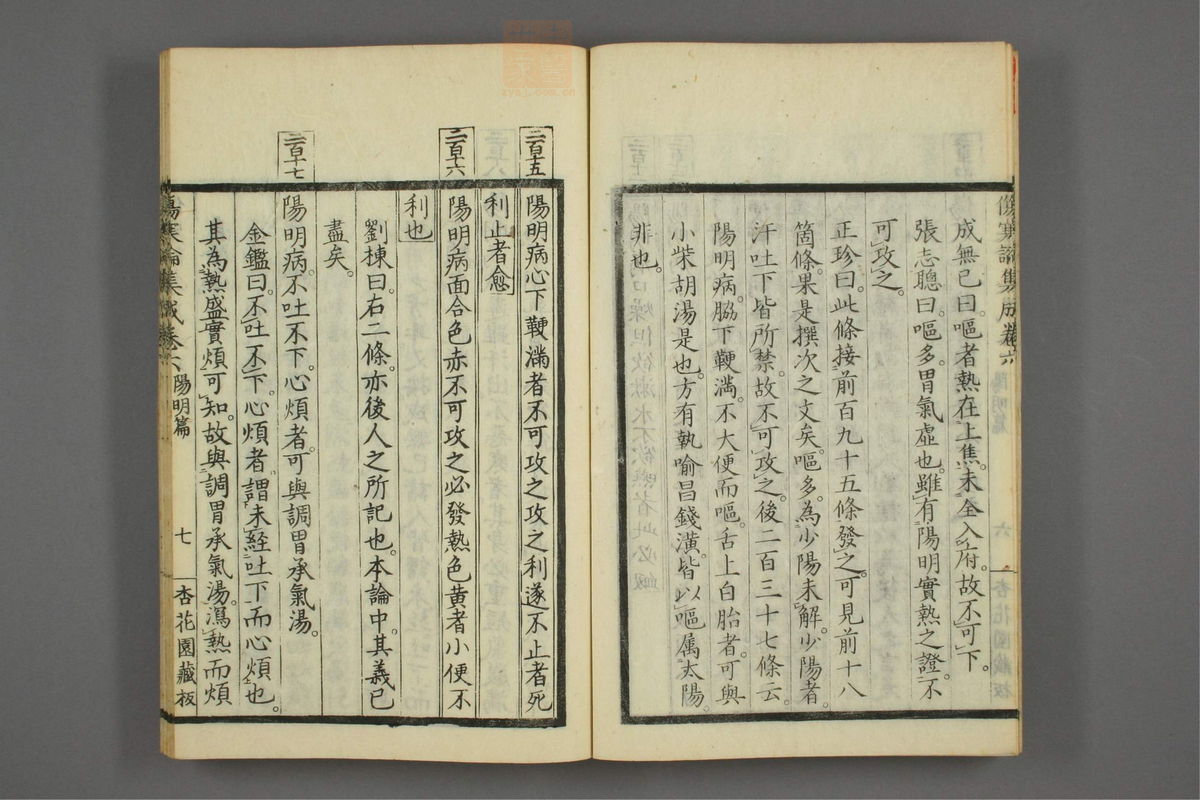 傷寒論集成卷六
成無已曰。嘔者熱在上焦。未全入府。故不可下。
張志聰曰。嘔多。胃氣虛也。雖有陽明實熱之證。不
可攻之。
正珍曰。此條接前百九十五條發之。可見前十八
箇條。果是撰次之文矣。嘔多。為少陽未解。少陽者。
汗吐下皆所禁。故不可攻之。後二百三十七條云。
陽明病。脇下鞕滿。不大便而嘔。舌上白胎者。可與
小柴胡湯是也。方有執喻昌錢潢。皆以嘔屬太陽。
非也。
二百十五
陽明病心下鞕滿者不可攻之攻之利遂不止者死
利止者愈
二百十六
陽明病面合色赤不可攻之必發熱色黄者小便不
利也
劉棟曰。右二條。亦後人之所記也。本論中。其義已
盡矣。
二百十七
陽明病。不吐不下。心煩者。可與調胃承氣湯。
金鑑曰。不吐不下。心煩者。謂未經吐下。而心煩也。
其為熱盛實煩可知。故與調胃承氣湯。瀉熱而煩
傷寒論集成卷六 陽明篇 七 杏花園藏板